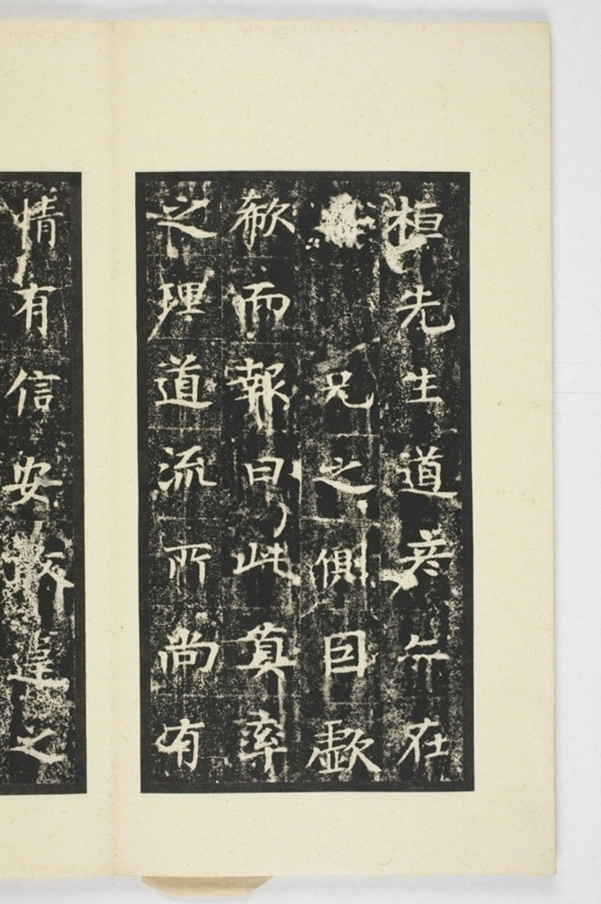 桓先生道彦亦在
兄之側囙歔
欷而報曰此真率
之理道流所尚有
情有信安敢違之